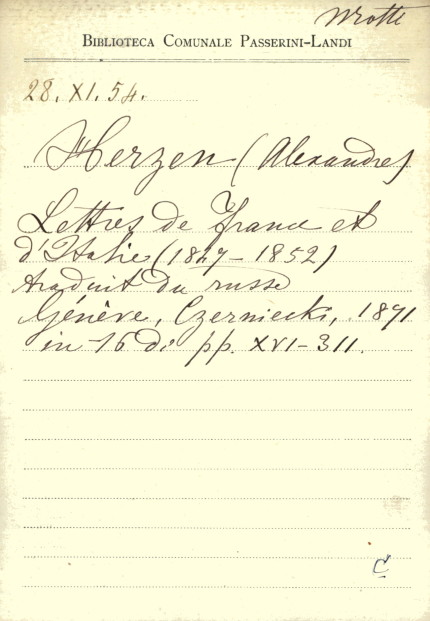 Mrotti
BIBLIOTECA COMUNALE PASSERINI-LANDI
28. XI. 54.
Herzen (Alexandre)
Lettres de France et
d'Italie (1847-1852)
traduit du russe
Génève, Czerniecki, 1871
in-16 di pp. XVI-311.
C